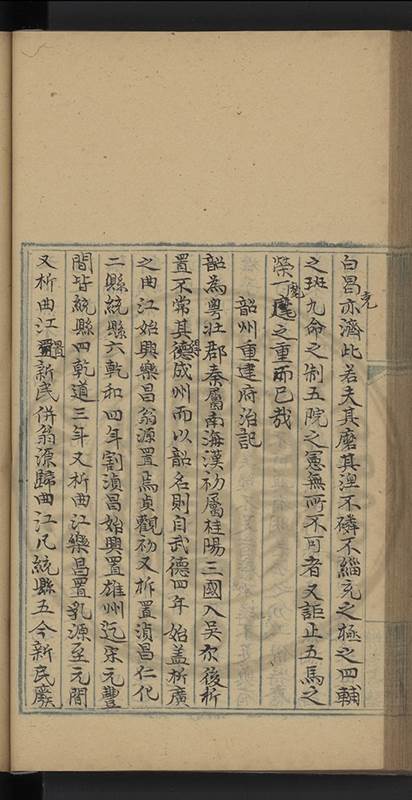 白昌亦濟此若夫其磨其涅不磷不緇充之極之四輔
之班九命之制五院之憲無所不可者又詎止五馬之
榮一麾之重而已哉
韶州重建府治記
韶為粵壯郡秦屬南海漢初屬桂陽三國入吳尔後析
置不常其德成州而以韶名則自武德四年始盖析廣
之曲江始興樂昌翁源置焉貞觀初又析置湞昌仁化
二縣統縣六乾和四年割湞昌始興置雄州迄宋元豐
間皆統縣四乾道三年又析曲江樂昌置乳源至元間
又析曲江置新民併翁源歸曲江凡統縣五今新民廢